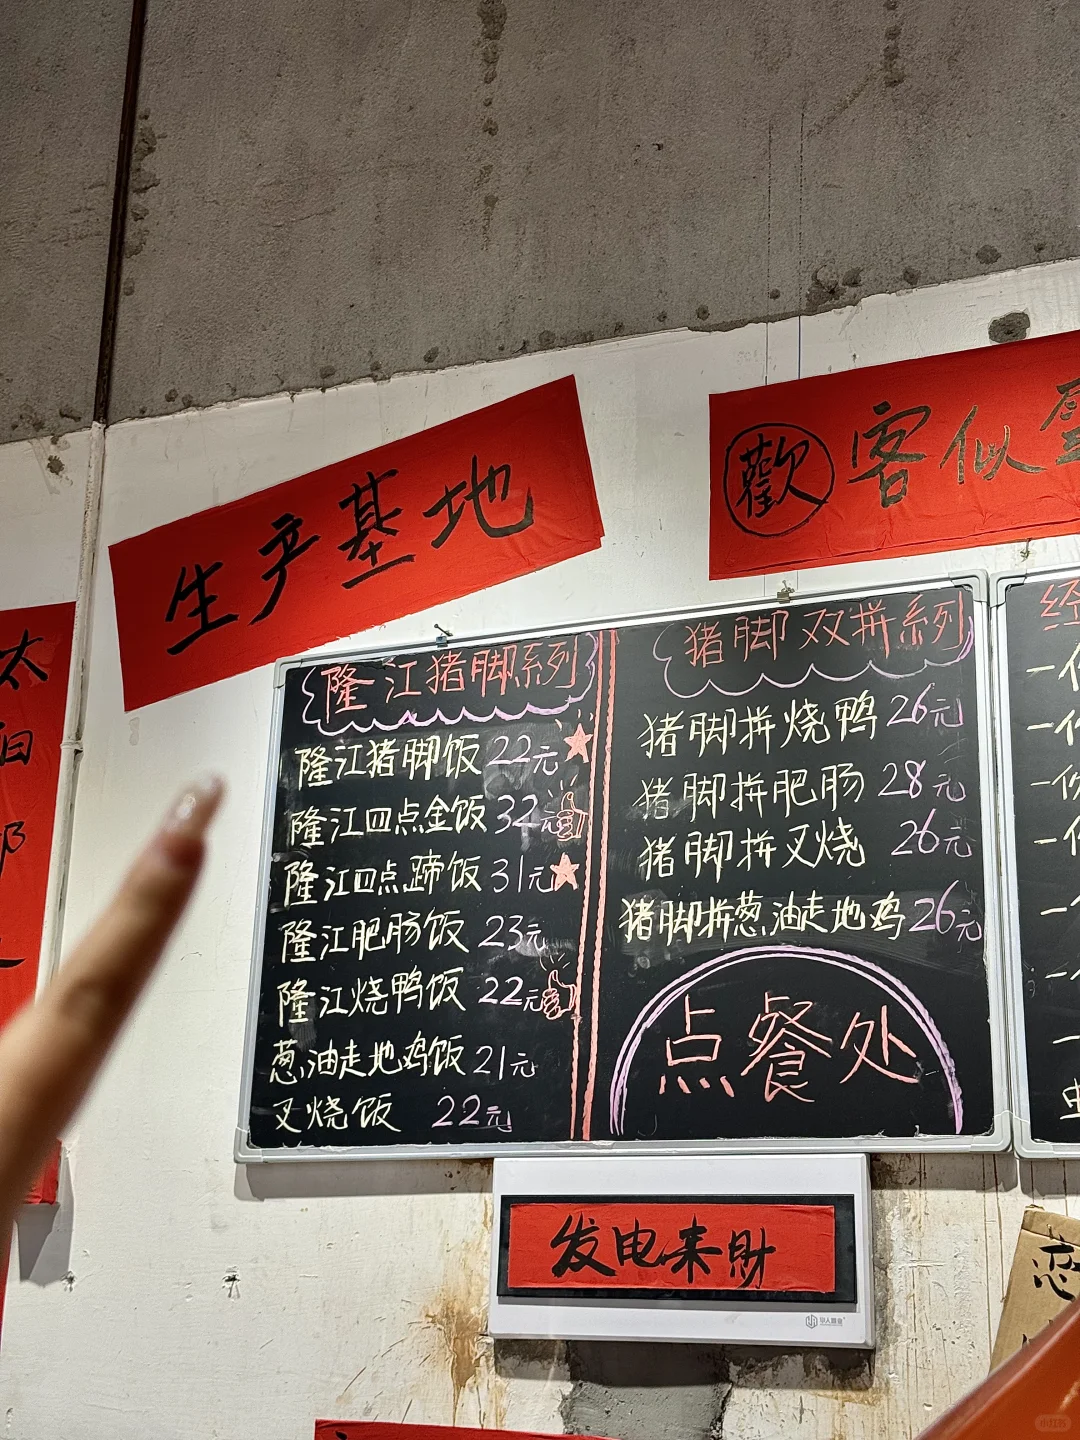 生产基地
歡 客似
太
归
隆江猪脚系列
隆江猪脚饭 22元
隆江四点金饭 32元
隆江四点蹄饭 31元
隆江肥肠饭 23元
隆江烧鸭饭 22元
葱油走地鸡饭 21元
叉烧饭 22元
猪脚双拼系列
猪脚拼烧鸭 26元
猪脚拼肥肠 28元
猪脚拼叉烧 26元
猪脚拼葱油走地鸡 26元
点餐处
经
一
一
一
一
一
一
发电来财
恋
小红书